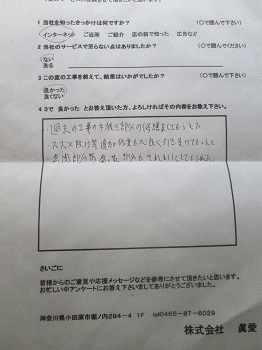 1 当社を知ったきっかけは何ですか? (○で囲んで下さい)
インターネット ご近所 ご紹介 店の前で知った 広告など
2 当社のサービスで至らない点はありましたか? (○で囲んで下さい)
ない
ある
3 この度の工事を終えて、結果はいかがでしたか? (○で囲んで下さい)
良かった
良くない
4 3で 良かった とお答え頂いた方、よろしければその内容をお教え下さい。
・過去の工事の手抜き部分の修理までしてもらえた
さいごに
皆様からのご意見や応援メッセージなどを参考にさせて頂きたいと思います。
お忙しい中アンケートにお答え下さいましてありがとうございました。
神奈川県小田原市堀ノ内294-4 1F tel0465-87-6029
株式会社 眞愛